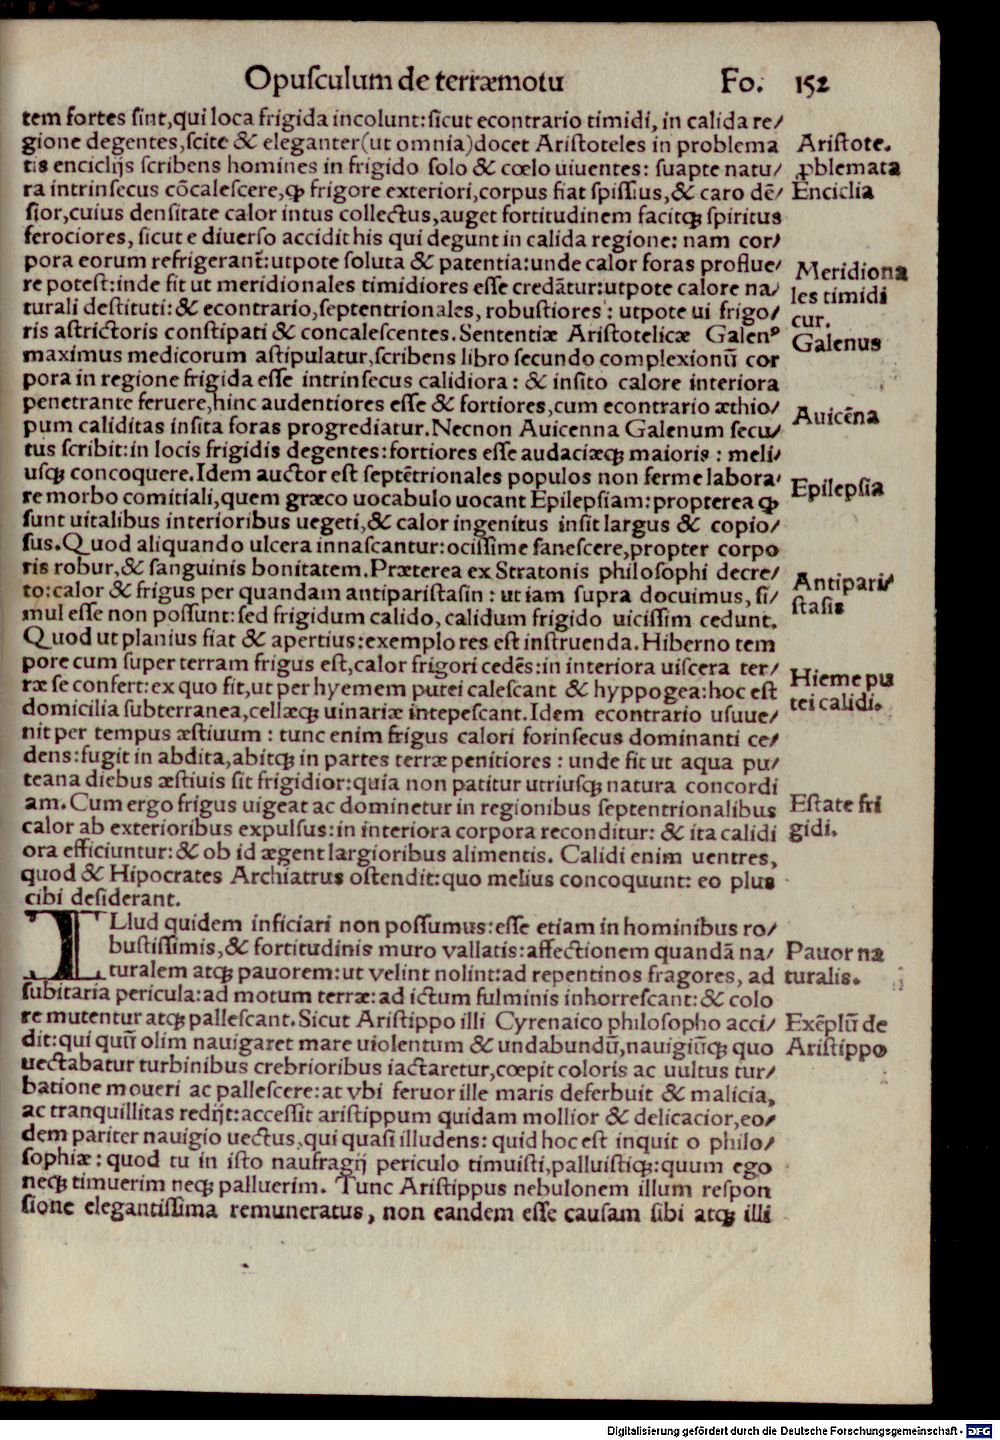 Opusculum de terræmotu Fo. 152
tem fortes sint,qui loca frigida incolunt:sicut econtrario timidi, in calida re/
gione degentes,scite & eleganter(ut omnia)docet Aristoteles in problema
tis enciclijs scribens homines in frigido solo & cœlo uiuentes: suapte natu/
ra intrinsecus cōcalescere,ꝙ frigore exteriori,corpus fiat spissius,& caro dē/
sior,cuius densitate calor intus collectus,auget fortitudinem facitqꝫ spiritus
ferociores, sicut e diuerso accidit his qui degunt in calida regione: nam cor/
pora eorum refrigerant̃:utpote soluta & patentia:unde calor foras proflue/
re potest:inde fit ut meridionales timidiores esse credãtur:utpote calore na/
turali destituti:& econtrario,septentrionales, robustiores : utpote ui frigo/
ris astrictoris constipati & concalescentes.Sententiæ Aristotelicæ Galenꝰ
maximus medicorum astipulatur,scribens libro secundo complexionū cor
pora in regione frigida esse intrinsecus calidiora : & insito calore interiora
penetrante feruere,hinc audentiores esse & fortiores,cum econtrario æthio/
pum caliditas insita foras progrediatur.Necnon Auicenna Galenum secu/
tus scribit:in locis frigidis degentes:fortiores esse audaciæqꝫ maioris : meli/
usqꝫ concoquere.Idem auctor est septētrionales populos non ferme labora/
re morbo comitiali,quem græco uocabulo uocant Epilepsiam:propterea ꝙ
sunt uitalibus interioribus uegeti,& calor ingenitus insit largus & copio/
sus.Quod aliquando ulcera innascantur:ocissime sanescere,propter corpo
ris robur,& sanguinis bonitatem.Præterea ex Stratonis philosophi decre/
to:calor & frigus per quandam antiparistasin : ut iam supra docuimus, si/
mul esse non possunt:sed frigidum calido, calidum frigido uicissim cedunt.
Quod ut planius fiat & apertius:exemplo res est instruenda.Hiberno tem
pore cum super terram frigus est,calor frigori cedēs:in interiora uiscera ter/
ræ se confert:ex quo fit,ut per hyemem putei calescant & hyppogea:hoc est
domicilia subterranea,cellæqꝫ uinariæ intepescant.Idem econtrario usuue/
nit per tempus æstiuum : tunc enim frigus calori forinsecus dominanti ce/
dens:fugit in abdita,abitqꝫ in partes terræ penitiores : unde fit ut aqua pu/
teana diebus æstiuis sit frigidior:quia non patitur utriusqꝫ natura concordi
am. Cum ergo frigus uigeat ac dominetur in regionibus septentrionalibus
calor ab exterioribus expulsus:in interiora corpora reconditur: & ita calidi
ora efficiuntur:& ob id ægent largioribus alimentis. Calidi enim uentres,
quod & Hipocrates Archiatrus ostendit:quo melius concoquunt: eo plus
cibi desiderant.
ILlud quidem inficiari non possumus:esse etiam in hominibus ro/
bustissimis,& fortitudinis muro vallatis:affectionem quandã na/
turalem atqꝫ pauorem:ut velint nolint:ad repentinos fragores, ad
subitaria pericula:ad motum terræ:ad ictum fulminis inhorrescant:& colo
re mutentur atqꝫ pallescant.Sicut Aristippo illi Cyrenaico philosopho acci/
dit:qui quū olim nauigaret mare uiolentum & undabundū,nauigiūqꝫ quo
uectabatur turbinibus crebrioribus iactaretur,cœpit coloris ac uultus tur/
batione moueri ac pallescere:at vbi feruor ille maris deferbuit & malicia,
ac tranquillitas redijt:accessit aristippum quidam mollior & delicacior,eo/
dem pariter nauigio uectus,qui quasi illudens: quid hoc est inquit o philo/
sophiæ : quod tu in isto naufragij periculo timuisti,palluistiqꝫ:quum ego
neqꝫ timuerim neqꝫ palluerim. Tunc Aristippus nebulonem illum respon
sione elegantissima remuneratus, non eandem esse causam sibi atqꝫ illi
Aristote.
ꝓblemata
Enciclia
Meridiona
les timidi
cur.
Galenus
Auicēna
Epilepsia
Antipari/
stasis
Hieme pu
tei calidi.
Estate fri
gidi.
Pauor na
turalis.
Exēplū de
Aristippo
Digitalisierung gefördert durch die Deutsche Forschungsgemeinschaft - DFG